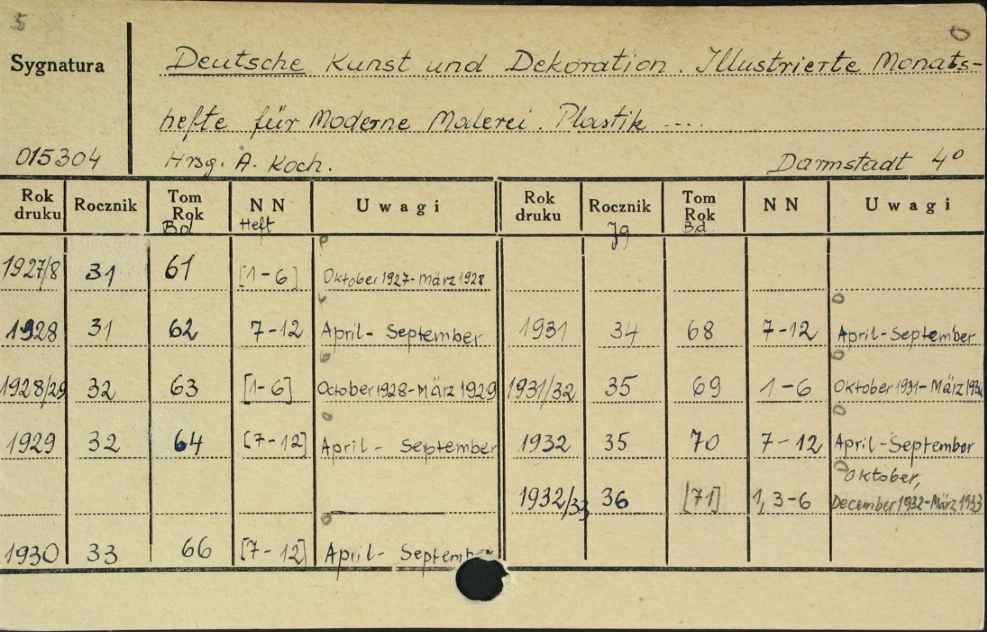 5
Sygnatura
Deutsche Kunst und Dekoration. Illustrierte Monats-
hefte für Moderne Malerei. Plastik ....
015304
Hrsg. A. Koch.
Darmstadt 4°
Rok druku Rocznik Tom Rok Bd NN Heft Uwagi
1927/8 31 61 [1-6] Oktober 1927-März 1928
1928 31 62 7-12 April- September
1928/29 32 63 [1-6] October 1928-März 1929
1929 32 64 [7-12] April- September
1930 33 66 [7-12] April- September
Rok druku Rocznik Jg Tom Rok Bd. NN Uwagi
1931 34 68 7-12 April-September
1931/32 35 69 1-6 Oktober 1931-März 1932
1932 35 70 7-12 April-September
1932/33 36 [71] 1, 3-6 Oktober, December 1932-März 1933